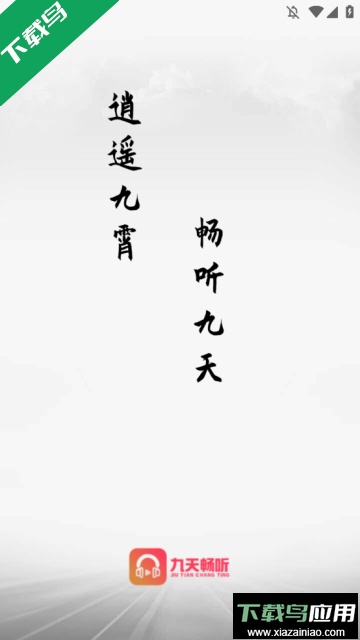 下载鸟
逍遥九霄
畅听九天
九天畅听
JIU TIAN CHANG TING
下载鸟应用
www.xiazainiao.com